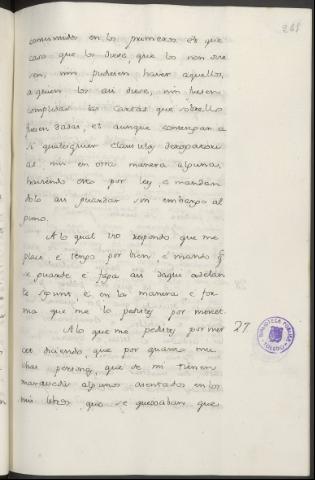 265
consumidos en los primeros et que
caso que los diere, que los non die
sen, nin pudiesen haver aquellos
a quien los asi diese, nin fuesen
complidas las cartas que sobrello
fuesen dadas, et aunque contengan a
si qualesquier clausulas derogatori
as, nin en otra manera alguna,
haciendo esto por ley, e mandan
dolo asi guardar sin embargo al
guno.
A lo qual vos respondo que me
place, e tengo por bien, e mando q
se guarde e faga asi daqui adelan
te segunt, e en la manera e for
ma que me lo pedistes por merced.
A lo que me pedistes por mer 27
cet diciendo, que por quanto mu
chas personas, que de mi tienen
maravedis algunos asentados en los
mis libros, que se quexaban que
BIBLIOTECA PUBLICA
TOLEDO